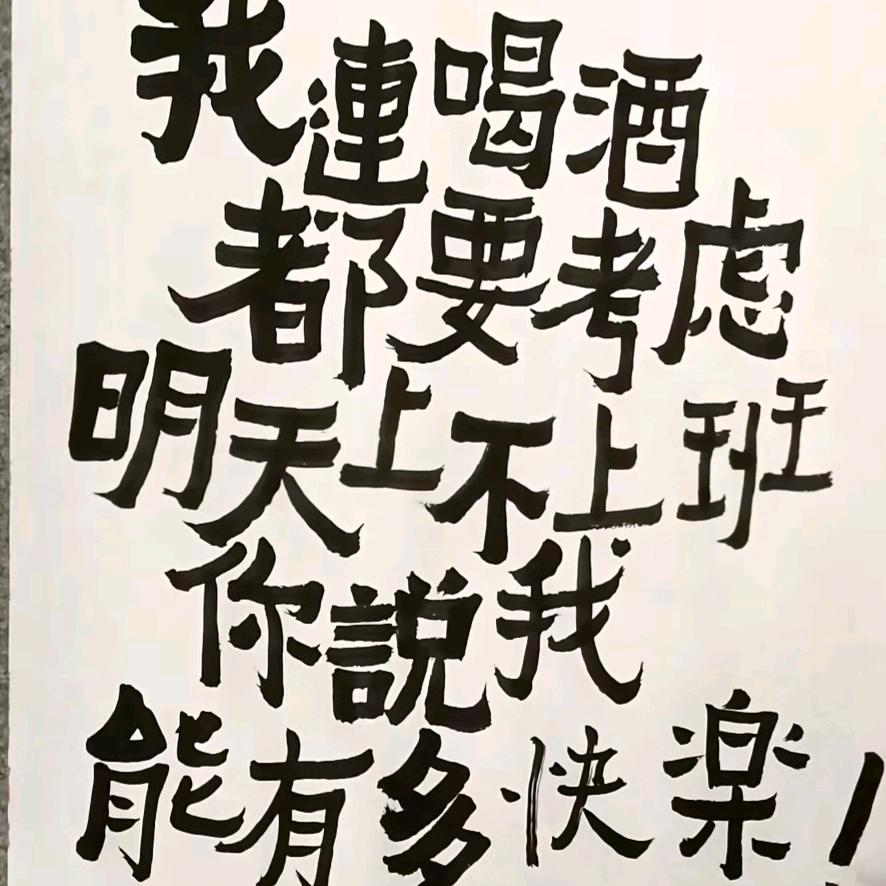 我連喝酒
都要考虑
明天上不上班
你説我
能有多快楽!